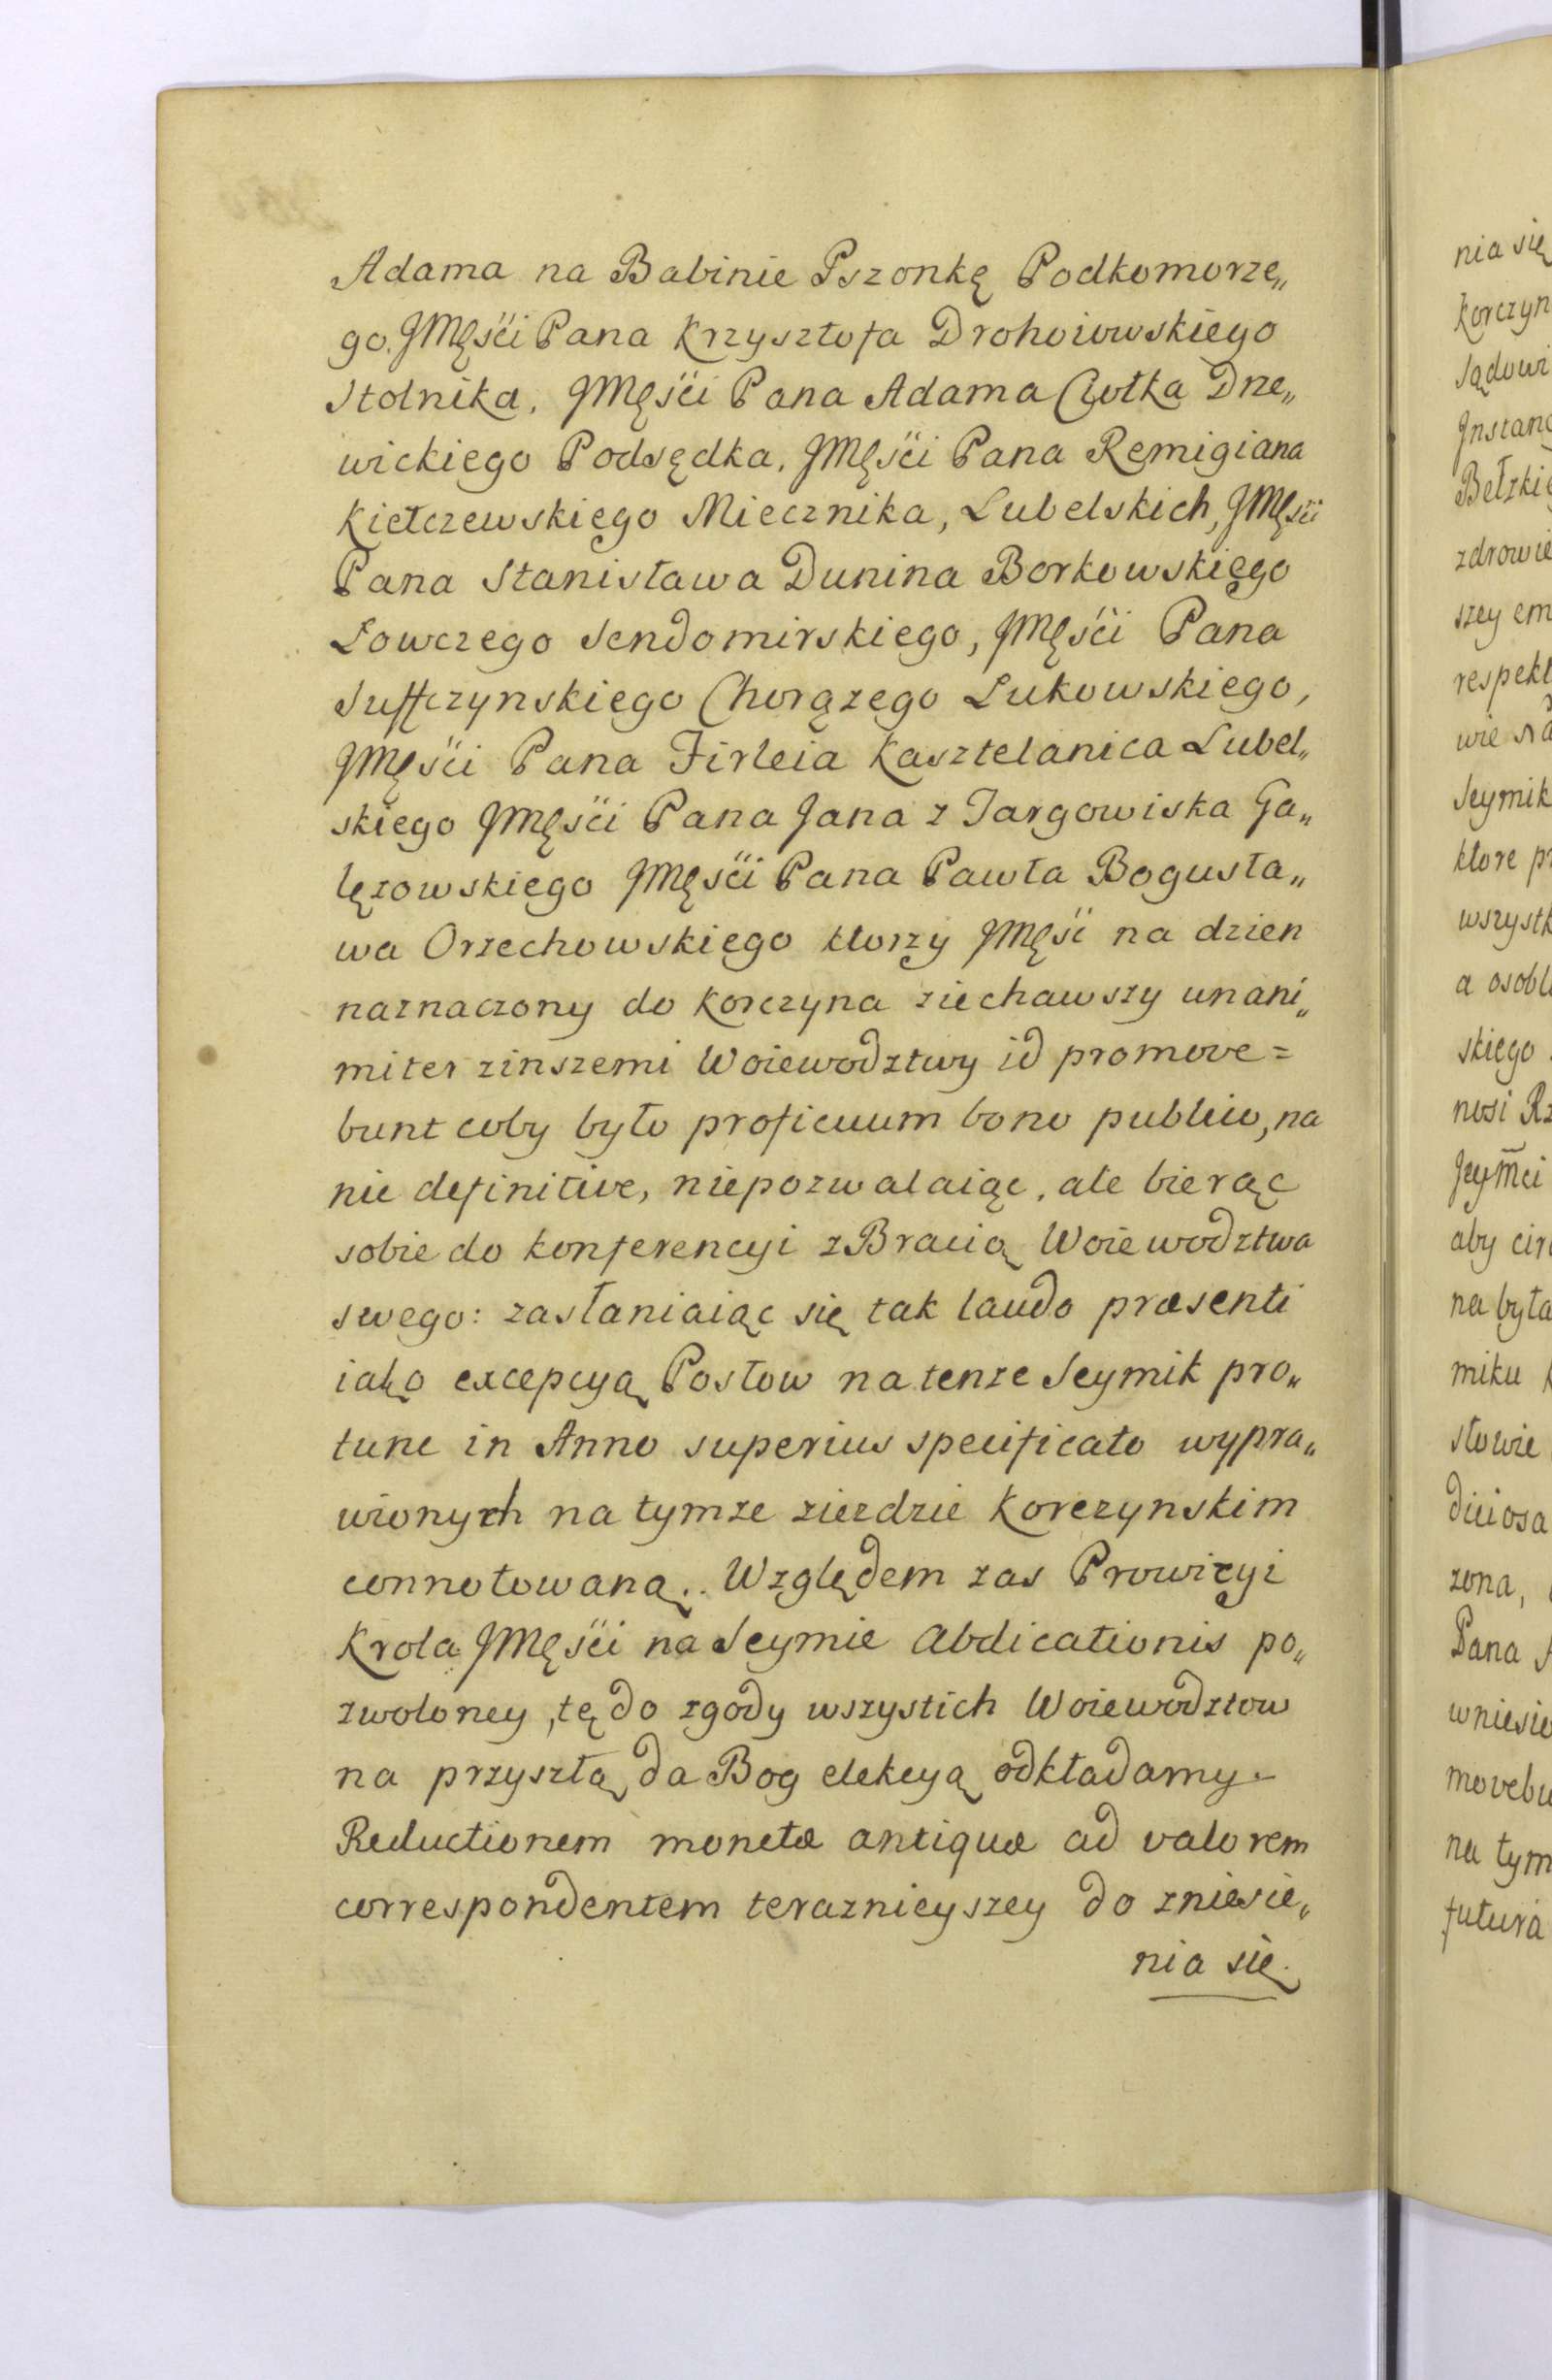 Adama na Babinie Pszonkę Podkomorze„
go. JMęści Pana Krzysztofa Drohoiowskiego
Stolnika, JMęści Pana Adama Ciołka Drze„
wickiego Podsędka, JMęści Pana Remigiana
Kiełczewskiego Miecznika, Lubelskich, JMęści
Pana Stanisława Dunina Borkowskięgo
Łowczego Sendomirskiego, JMęści Pana
Suffczynskiego Chorązego Lukowskiego,
JMęści Pana Firleia Kasztelanica Lubel„
skiego JMęści Pana Jana z Targowiska Ga„
lęzowskiego JMęści Pana Pawła Bogusła„
wa Orzechowskięgo ktorzy JMęści na dzien
naznaczony do Korczyna ziechawszy unani„
miter zinszemi Woiewodztwy id promove=
bunt coby było proficuum bono publico, na
nic definitive, niepozwalaiąc, ale bierąc
sobie do konferencyi z Bracią Woiewodztwa
swego: zasłaniaiąc się tak laudo præsenti
iako excepcyą Posłow na tenze Seymik pro„
tunc in Anno superius specificato wypra„
wionych na tymze ziezdzie Korczynskim
connotowaną. Względem zas Prowizyi
Krola JMęści na Seymie Abdicationis po„
zwoloney, tę do zgody wszystich Woiewodztow
na przyszłą da Bog elekcyą odkładamy.
Reductionem monetæ antiquæ ad valorem
correspondentem teraznieyszey do zniesie„
nia się.
nia się
Korczyn
Sądowi
Instanc
Bełzkie
zdrowie
szey em
respekt
wie
Seymik
ktore pr
wszystk
a osobl
skiego
nosi Rz
Jeymci
aby cir
na była
miku k
słowie
diciosa
zona,
Pana
wniesie
movebu
na tym
futura